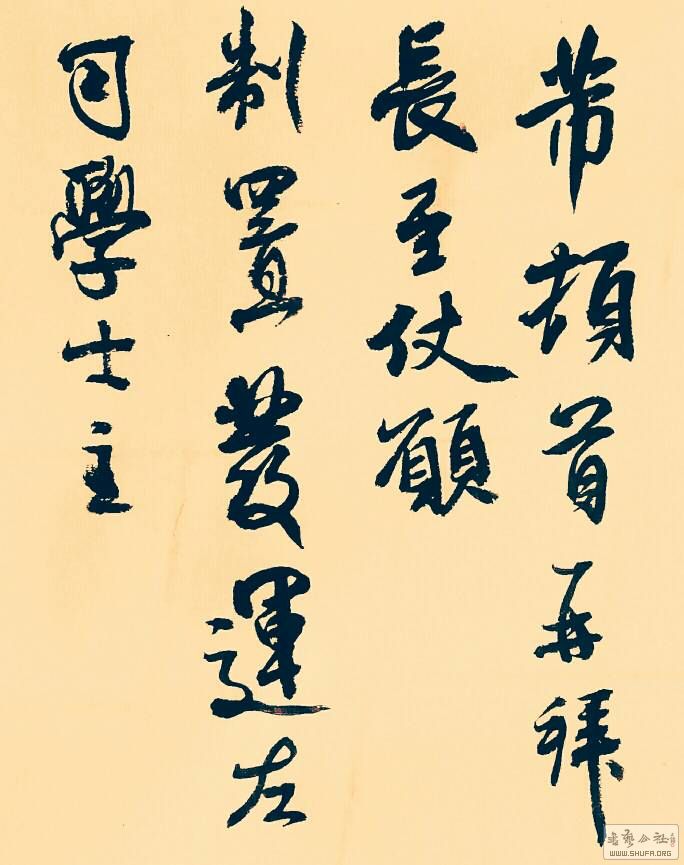 芾頓首再拜
長至伏願
制置發運左
司學士主
书艺公社
WWW.SHUFA.ORG